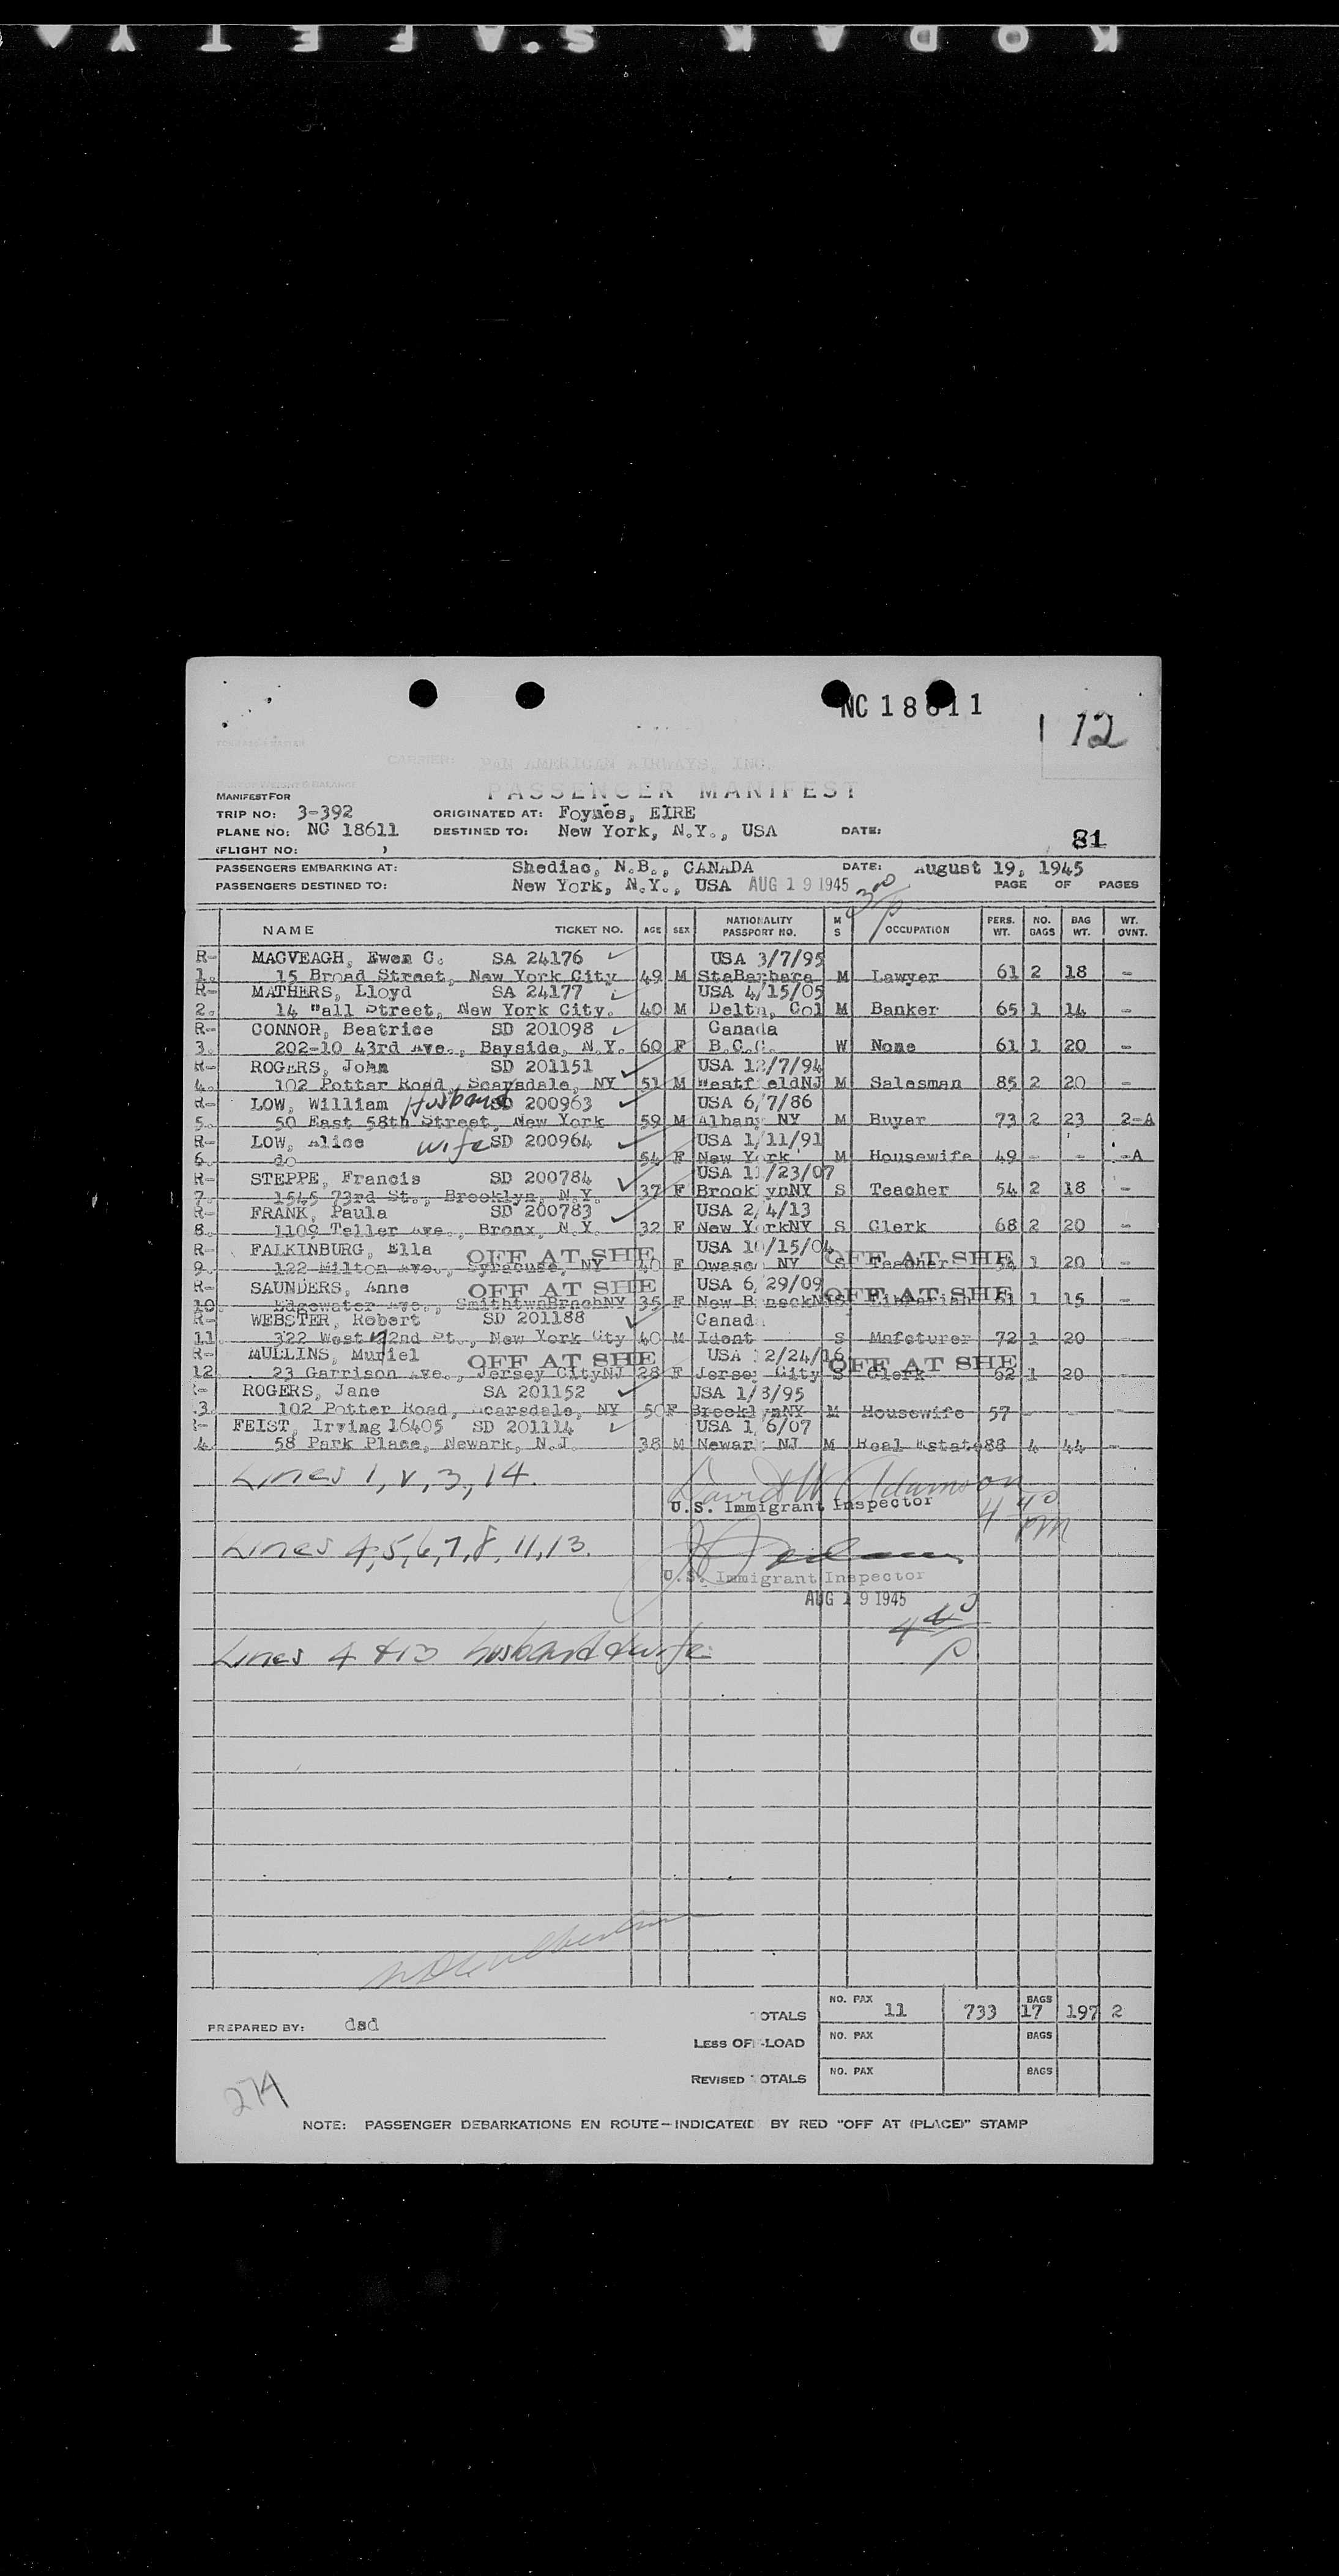 KODAK S.AFETY
NC 18611
12
CARRIER: PAN AMERICAN AIRWAYS, INC.
PASSENGER MANIFEST
MANIFEST FOR
TRIP NO: 3-392 ORIGINATED AT: Foynes, EIRE
PLANE NO: NC 18611 DESTINED TO: New York, N.Y., USA DATE:
81
(FLIGHT NO: )
PASSENGERS EMBARKING AT: Shediac, N.B., CANADA DATE: August 19, 1945
PASSENGERS DESTINED TO: New York, N.Y., USA AUG 19 1945 PAGE OF PAGES
300
P
NAME TICKET NO. AGE SEX NATIONALITY PASSPORT NO. M S OCCUPATION PERS. WT. NO. BAGS BAG WT. WT. OVNT.
R- MACVEAGH, Ewen C. SA 24176 USA 3/7/95
1. 15 Broad Street, New York City 49 M StaBarbara M Lawyer 61 2 18 -
R- MATHERS, Lloyd SA 24177 USA 4/15/05
2. 14 "all Street, New York City. 40 M Delta, Col M Banker 65 1 14 -
R- CONNOR, Beatrice SD 201098 Canada
3. 202-10 43rd Ave., Bayside, N.Y. 60 F B.C.C. W None 61 1 20 -
R- ROGERS, John SD 201151 USA 12/7/94
4. 102 Potter Road, Scarsdale, NY 51 M Westf eldNJ M Salesman 85 2 20 -
R- LOW, William Husband SD 200963 USA 6/7/86
5. 50 East 58th Street, New York 59 M Albany NY M Buyer 73 2 23 2-A
R- LOW, Alice wife SD 200964 USA 1/11/91
6. do 54 F New York M Housewife 49 - - -A
R- STEPPE, Francis SD 200784 USA 11/23/07
7. 1545 73rd St., Brooklyn, N.Y. 37 F Brook ynNY S Teacher 54 2 18 -
R- FRANK, Paula SD 200783 USA 2/4/13
8. 1109 Teller Ave., Bronx, N.Y. 32 F New YorkNY S Clerk 68 2 20 -
R- FALKINBURG, Ella OFF AT SHE USA 10/15/04 OFF AT SHE
9. 122 Milton Ave., Syracuse, NY 40 F Owasco NY S Teacher 54 1 20 -
R- SAUNDERS, Anne OFF AT SHE USA 6/29/09 OFF AT SHE
10. Edgewater Ave., SmithtwnBrnchNY 35 F S Librarian 1 15 -
R- WEBSTER, Robert SD 201188 Canad
11 322 West 72nd St., New York Cty 40 M Ident S Mnfcturer 72 1 20
R- MULLINS, Muriel OFF AT SHE USA 12/24/16 OFF AT SHE
12 23 Garrison Ave., Jersey CityNJ 28 F Jersey City S Clerk 62 1 20 -
- ROGERS, Jane SA 201152 USA 1/3/95
3. 102 Potter Road, Scarsdale, NY 50F BrooklynNY M Housewife 57 - - -
- FEIST, Irving 16405 SD 201114 USA 1/6/07
4. 58 Park Place, Newark, N.J. 38 M Newark NJ M Real Estate 88 4 44 -
Lines 1, 2, 3, 14. David W Adamson
U.S. Immigrant Inspector
4 40 PM
Lines 4, 5, 6, 7, 8, 11, 13.
U.S. Immigrant Inspector
AUG 19 1945
4 40
P
Lines 4 & 13 husband & wife
TOTALS NO. PAX 11 733 BAGS 17 197 2
PREPARED BY: dsd
LESS OFF-LOAD NO. PAX BAGS
REVISED TOTALS NO. PAX BAGS
274
NOTE: PASSENGER DEBARKATIONS EN ROUTE—INDICATED BY RED "OFF AT (PLACE)" STAMP